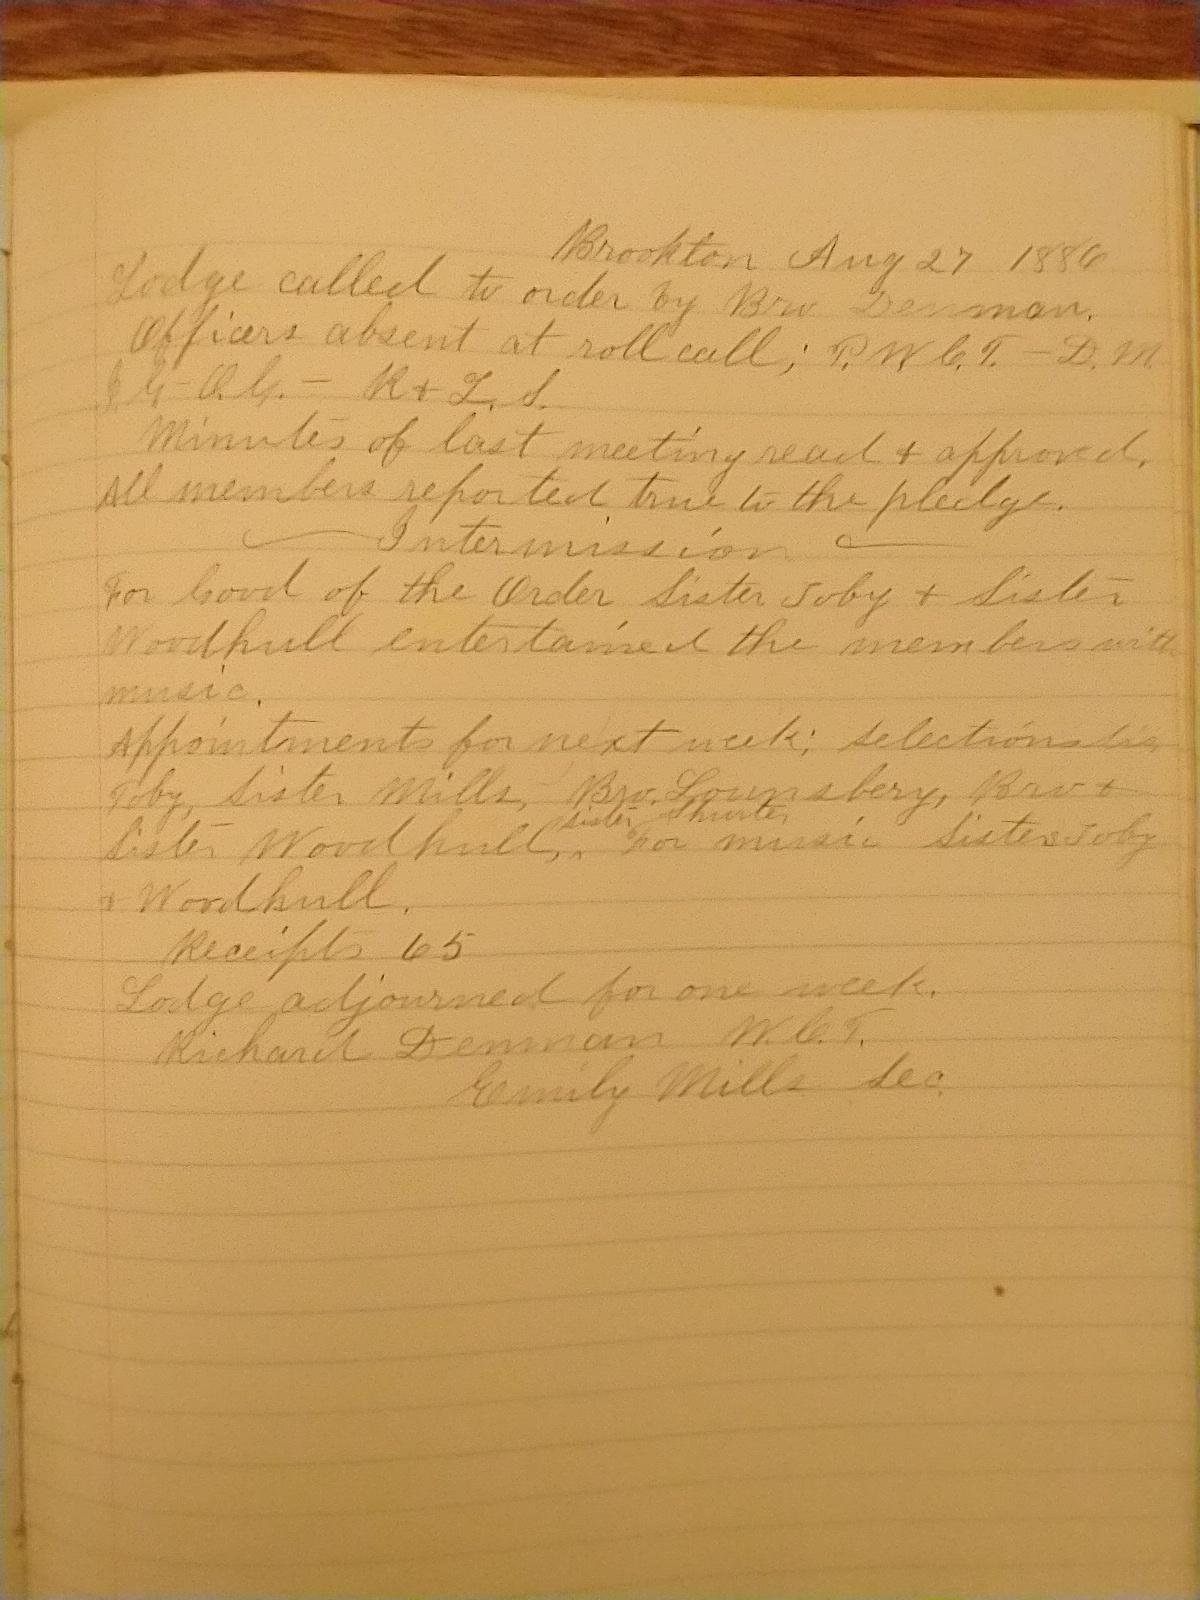 Brookton Aug 27 1886
Lodge called to order by Bro Denman.
Officers absent at roll call; P.W.C.T. – D.M.
I.G – O.G. – R + L.S.
Minutes of last meeting read + approved.
All members reported true to the pledge.
Intermission
For Good of the Order Sister Toby + Sister
Woodhull entertained the members with
music.
Appointments for next week; selections Sis
Toby, Sister Mills, Bro. Lounsbery, Bro +
Sister
Sister Woodhull, For music Sisters Toby
+ Woodhull.
Receipts 65
Lodge adjourned for one week.
Richard Denman W.C.T.
Emily Mills Sec